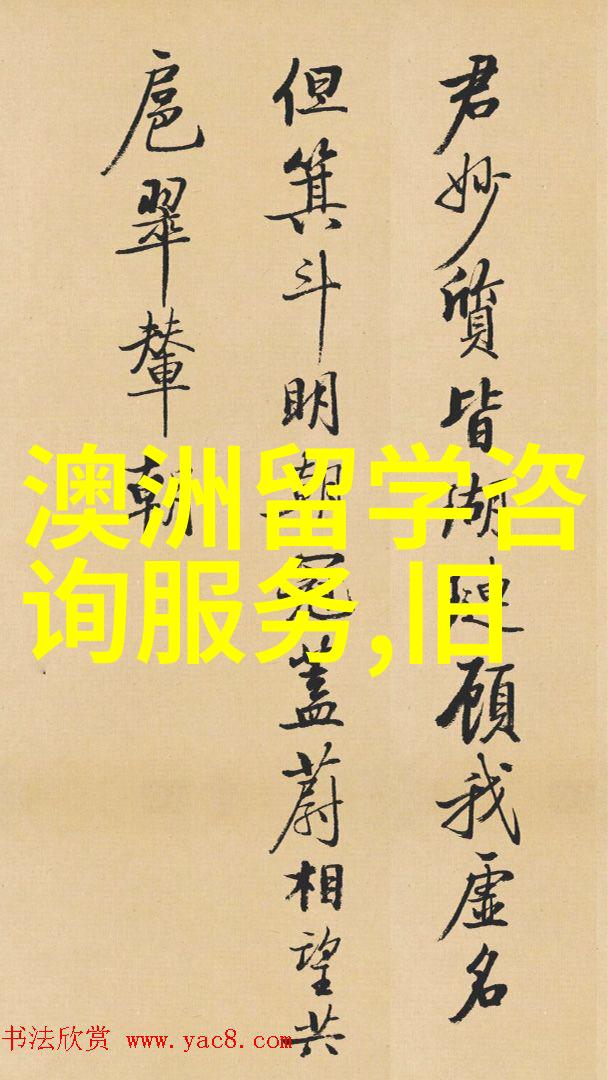 君妙質皆瑚璉顧我虛名
但箕斗明朝冠蓋蔚相望共
扈翠輦朝
澳洲留学咨
询服务,旧
书法欣赏 www.yac8.com